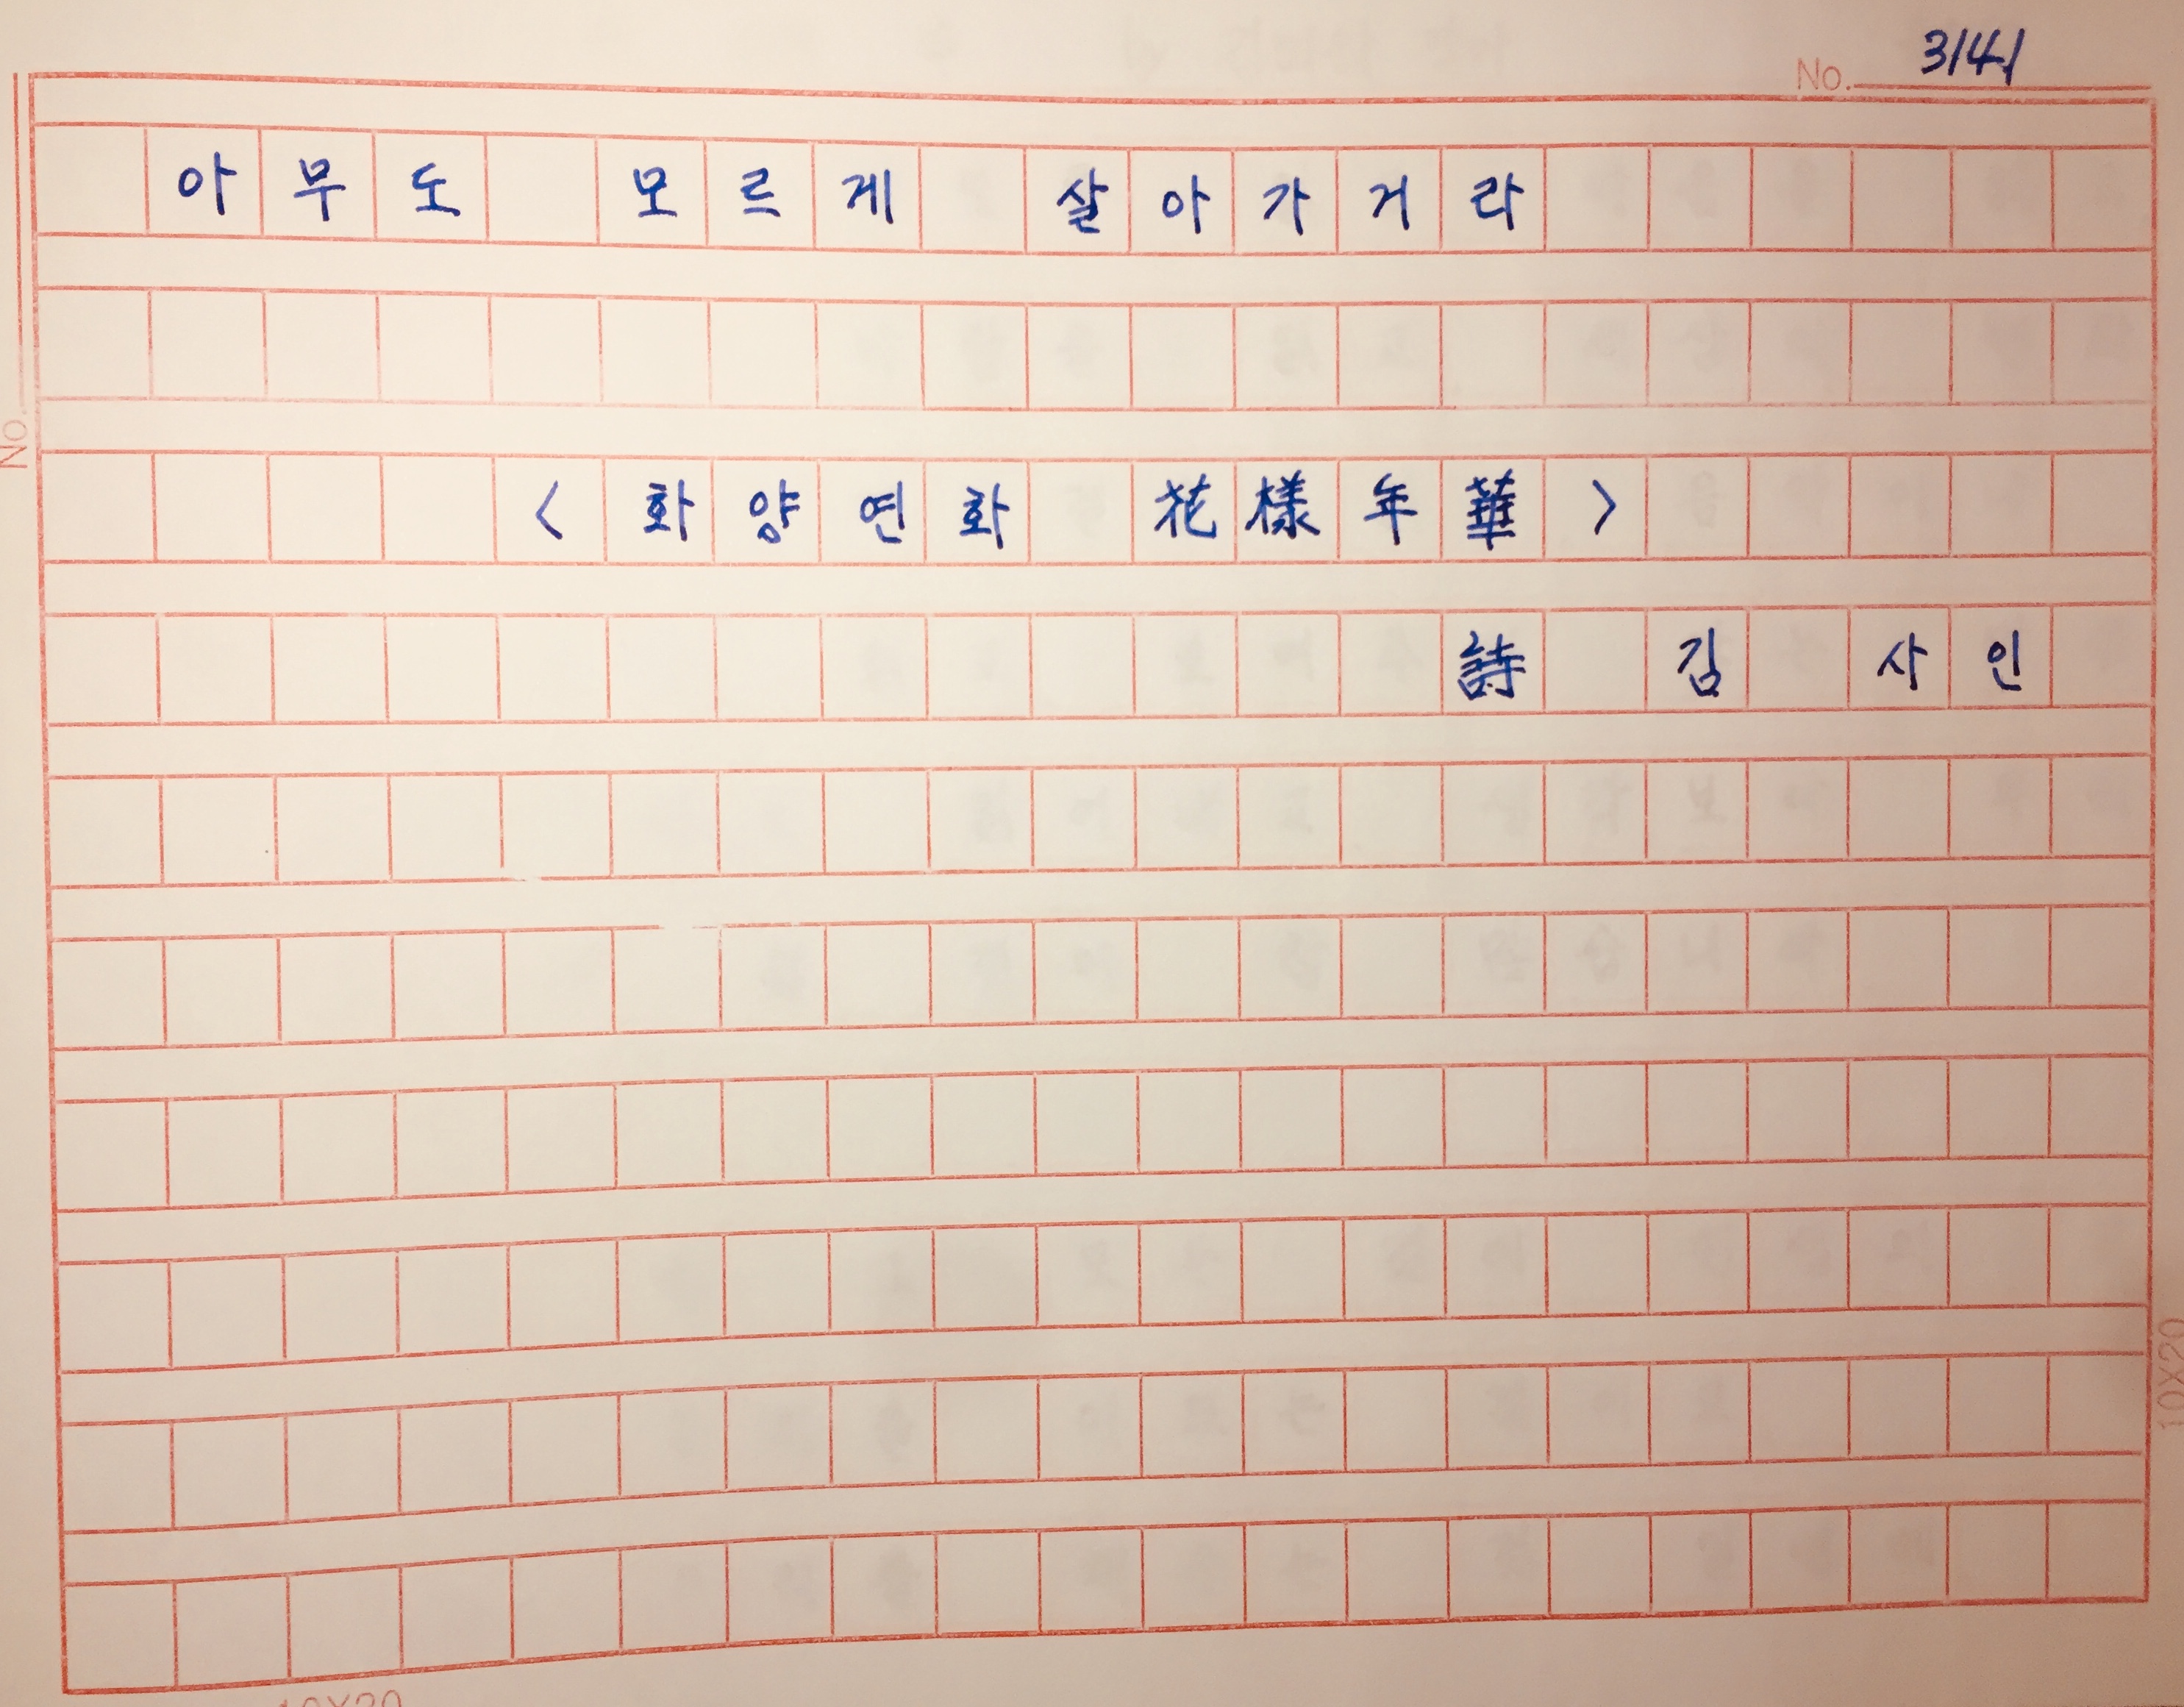 No. 3141
아무도 모르게 살아가거라
No.
<화양연화 花樣年華>
詩 김 사인
10X20
10X20